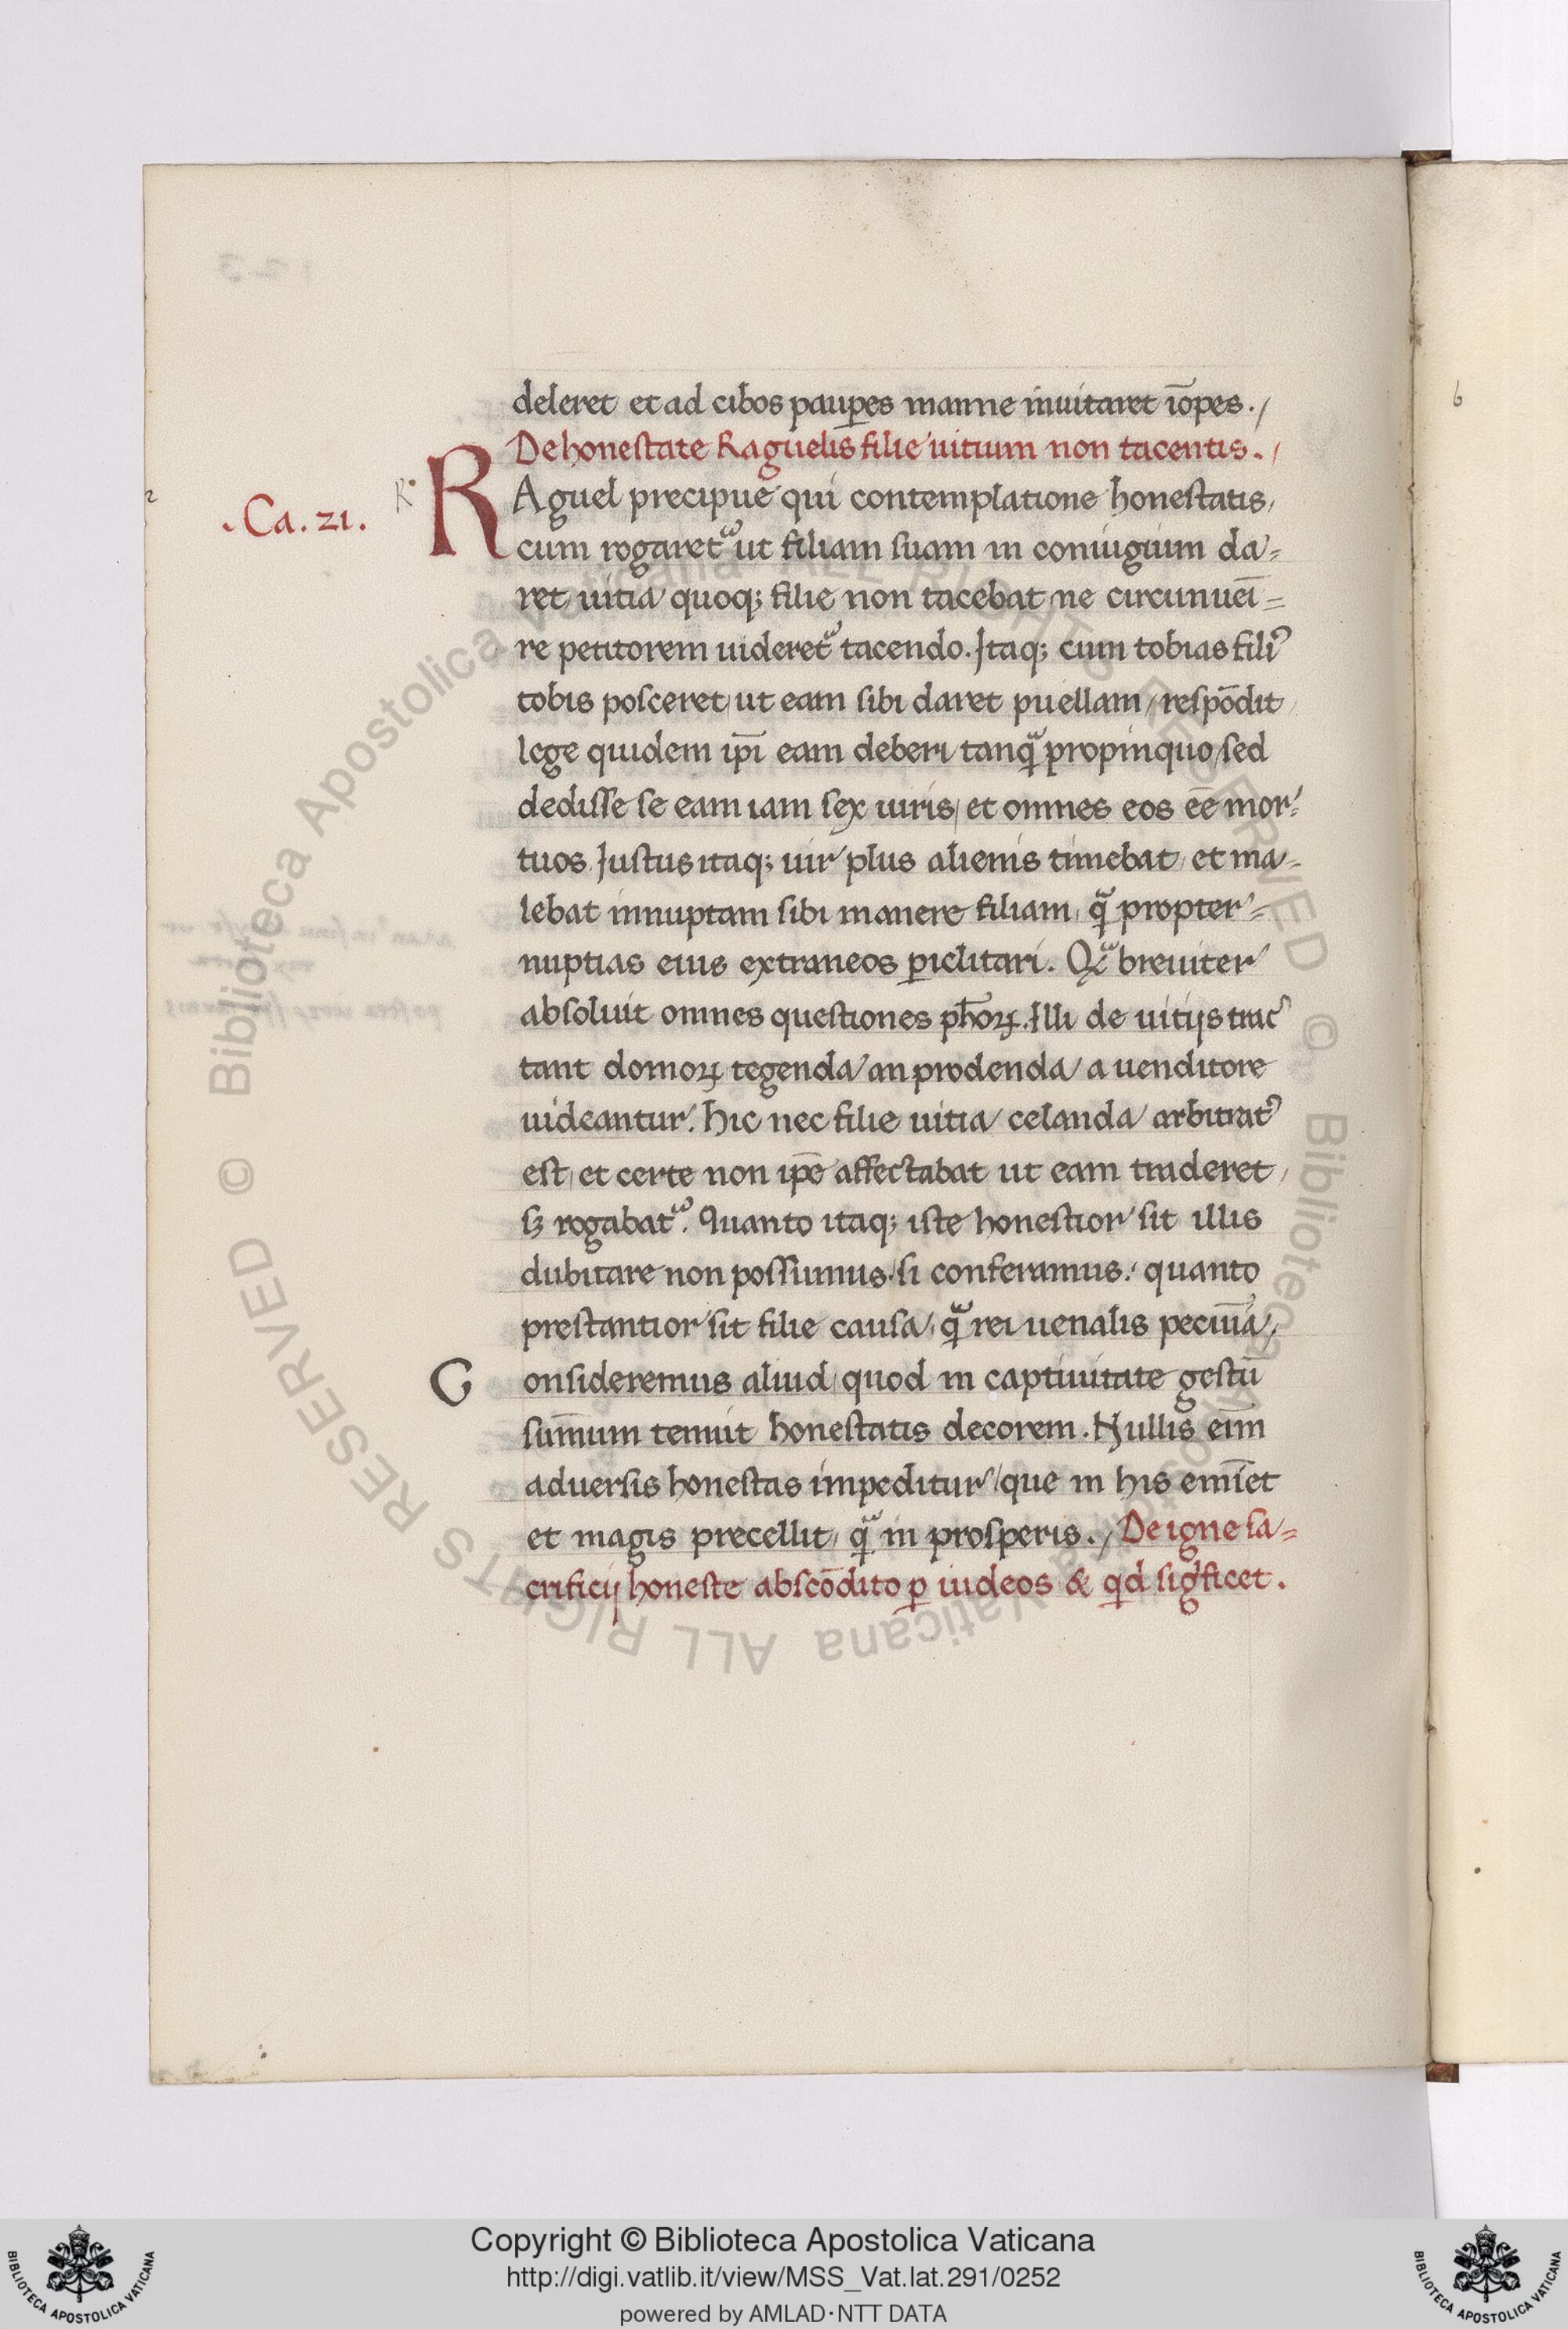 deleret et ad cibos paup̲es manne inuitaret īopes.
De honestate Raguelis filie uitium non tacentis.
.Ca. 21.
RAguel precipue qui contemplatione honestatis,
cum rogaret᷑ ut filiam suam in coniugium da-
ret uitia quoq; filie non tacebat ne circunueī-
re petitorem uideret᷑ tacendo. Itaq; cum tobias filiꝰ
tobis posceret, ut eam sibi daret puellam, respōdit
lege quidem ip̄i eam deberi, tanqᷓ propinquo, sed
dedisse se eam iam sex uiris, et omnes eos ēe mor-
tuos. Justus itaq; uir plus alienis timebat, et ma-
lebat innuptam sibi manere filiam, qᷓ propter
nuptias eius extraneos ꝑiclitari. Qᷓ breuiter
absoluit omnes questiones ph̄oꝝ. Illi de uitijs trac
tant domoꝝ tegenda an prodenda a uenditore
uideantur. hic nec filie uitia celanda arbitratꝰ
est, et certe non ip̄e affectabat ut eam traderet,
sꝫ rogabat᷑. Quanto itaq; iste honestior sit illis
dubitare non possumus, si conferamus. quanto
prestantior sit filie causa, qᷓ rei uenalis pecunīa.
Consideremus aliud, quod in captiuitate gestū
sum̄um tenuit honestatis decorem. Nullis eīm
aduersis honestas impeditur, que in his emīet
et magis precellit, qᷓ in prosperis. De igne sa-
crificij honeste abscōdito ꝑ iudeos & qd sigficet.
Copyright © Biblioteca Apostolica Vaticana
http://digi.vatlib.it/view/MSS_Vat.lat.291/0252
powered by AMLAD·NTT DATA
BIBLIOTECA APOSTOLICA VATICANA
BIBLIOTECA APOSTOLICA VATICANA
© Biblioteca Apostolica Vaticana ALL RIGHTS RESERVED © Biblioteca Apostolica Vaticana ALL RIGHTS RESERVED